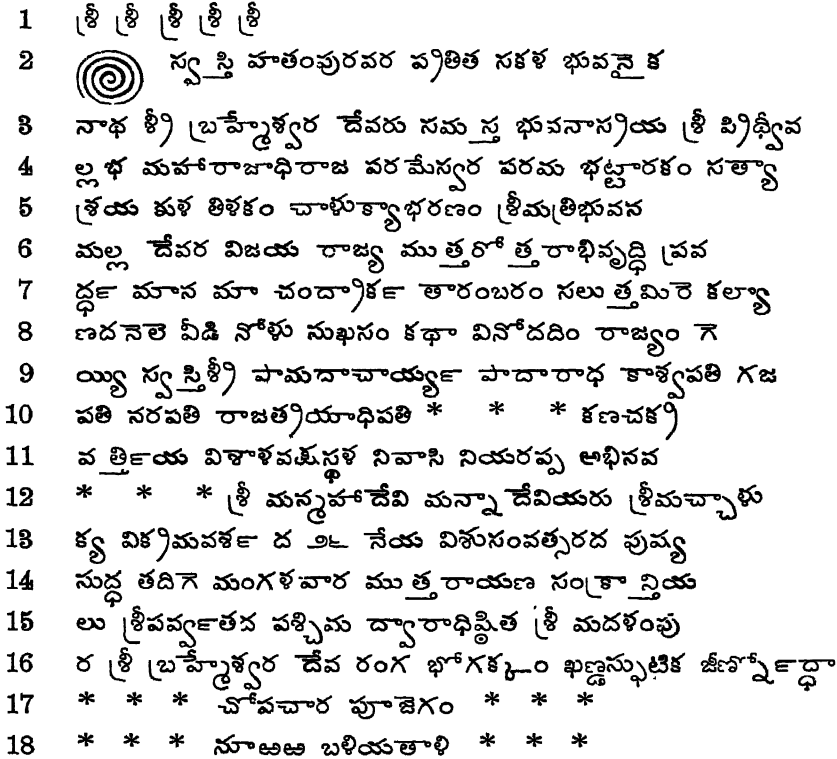 1 శ్రీ శ్రీ శ్రీ శ్రీ శ్రీ
2 స్వస్తి హతంపురవర ప్రతిత సకళ భువనైక
3 నాథ శ్రీ బ్రహ్మేశ్వర దేవరు సమస్త భువనాస్రయ శ్రీ ప్రిథ్వీవ
4 ల్లభ మహారాజాధిరాజ పరమేస్వర పరమ భట్టారకం సత్యా
5 శ్రయ కుళ తిళకం చాళుక్యాభరణం శ్రీమత్రిభువన
6 మల్ల దేవర విజయ రాజ్య ముత్తరోత్తరాభివృద్ధి ప్రవ
7 ర్ద్ధమాన మా చంద్రార్క తారంబరం సలుత్తమిరె కల్యా
8 ణద నెలె వీడి నోళు సుఖసం కథా వినోదదిం రాజ్యం గె
9 య్యి స్వస్తిశ్రీ పామదాచార్య్య పాదారాధ కాశ్వపతి గజ
10 పతి నరపతి రాజత్రయాధిపతి * * * కణచక్ర
11 వర్త్తియ విశాళవక్షస్థళ నివాసి నియరప్ప అభినవ
12 * * * శ్రీ మన్మహాదేవి మన్నాదేవియరు శ్రీమచ్చాళు
13 క్య విక్రమవర్శ ద ౨౬ నేయ విశుసంవత్సరద పుష్య
14 సుద్ధ తదిగె మంగళవార ముత్తరాయణ సంక్రాన్తియ
15 లు శ్రీపర్వ్వతద పశ్చిమ ద్వారాధిష్ఠిత శ్రీ మదళంపు
16 ర శ్రీ బ్రహ్మేశ్వర దేవ రంగ భోగక్కం ఖణ్డస్ఫుటిక జీర్ణ్నోద్ధా
17 * * * చోపచార పూజెగం * * *
18 * * * నూఱఱ బళియతాళి * * *